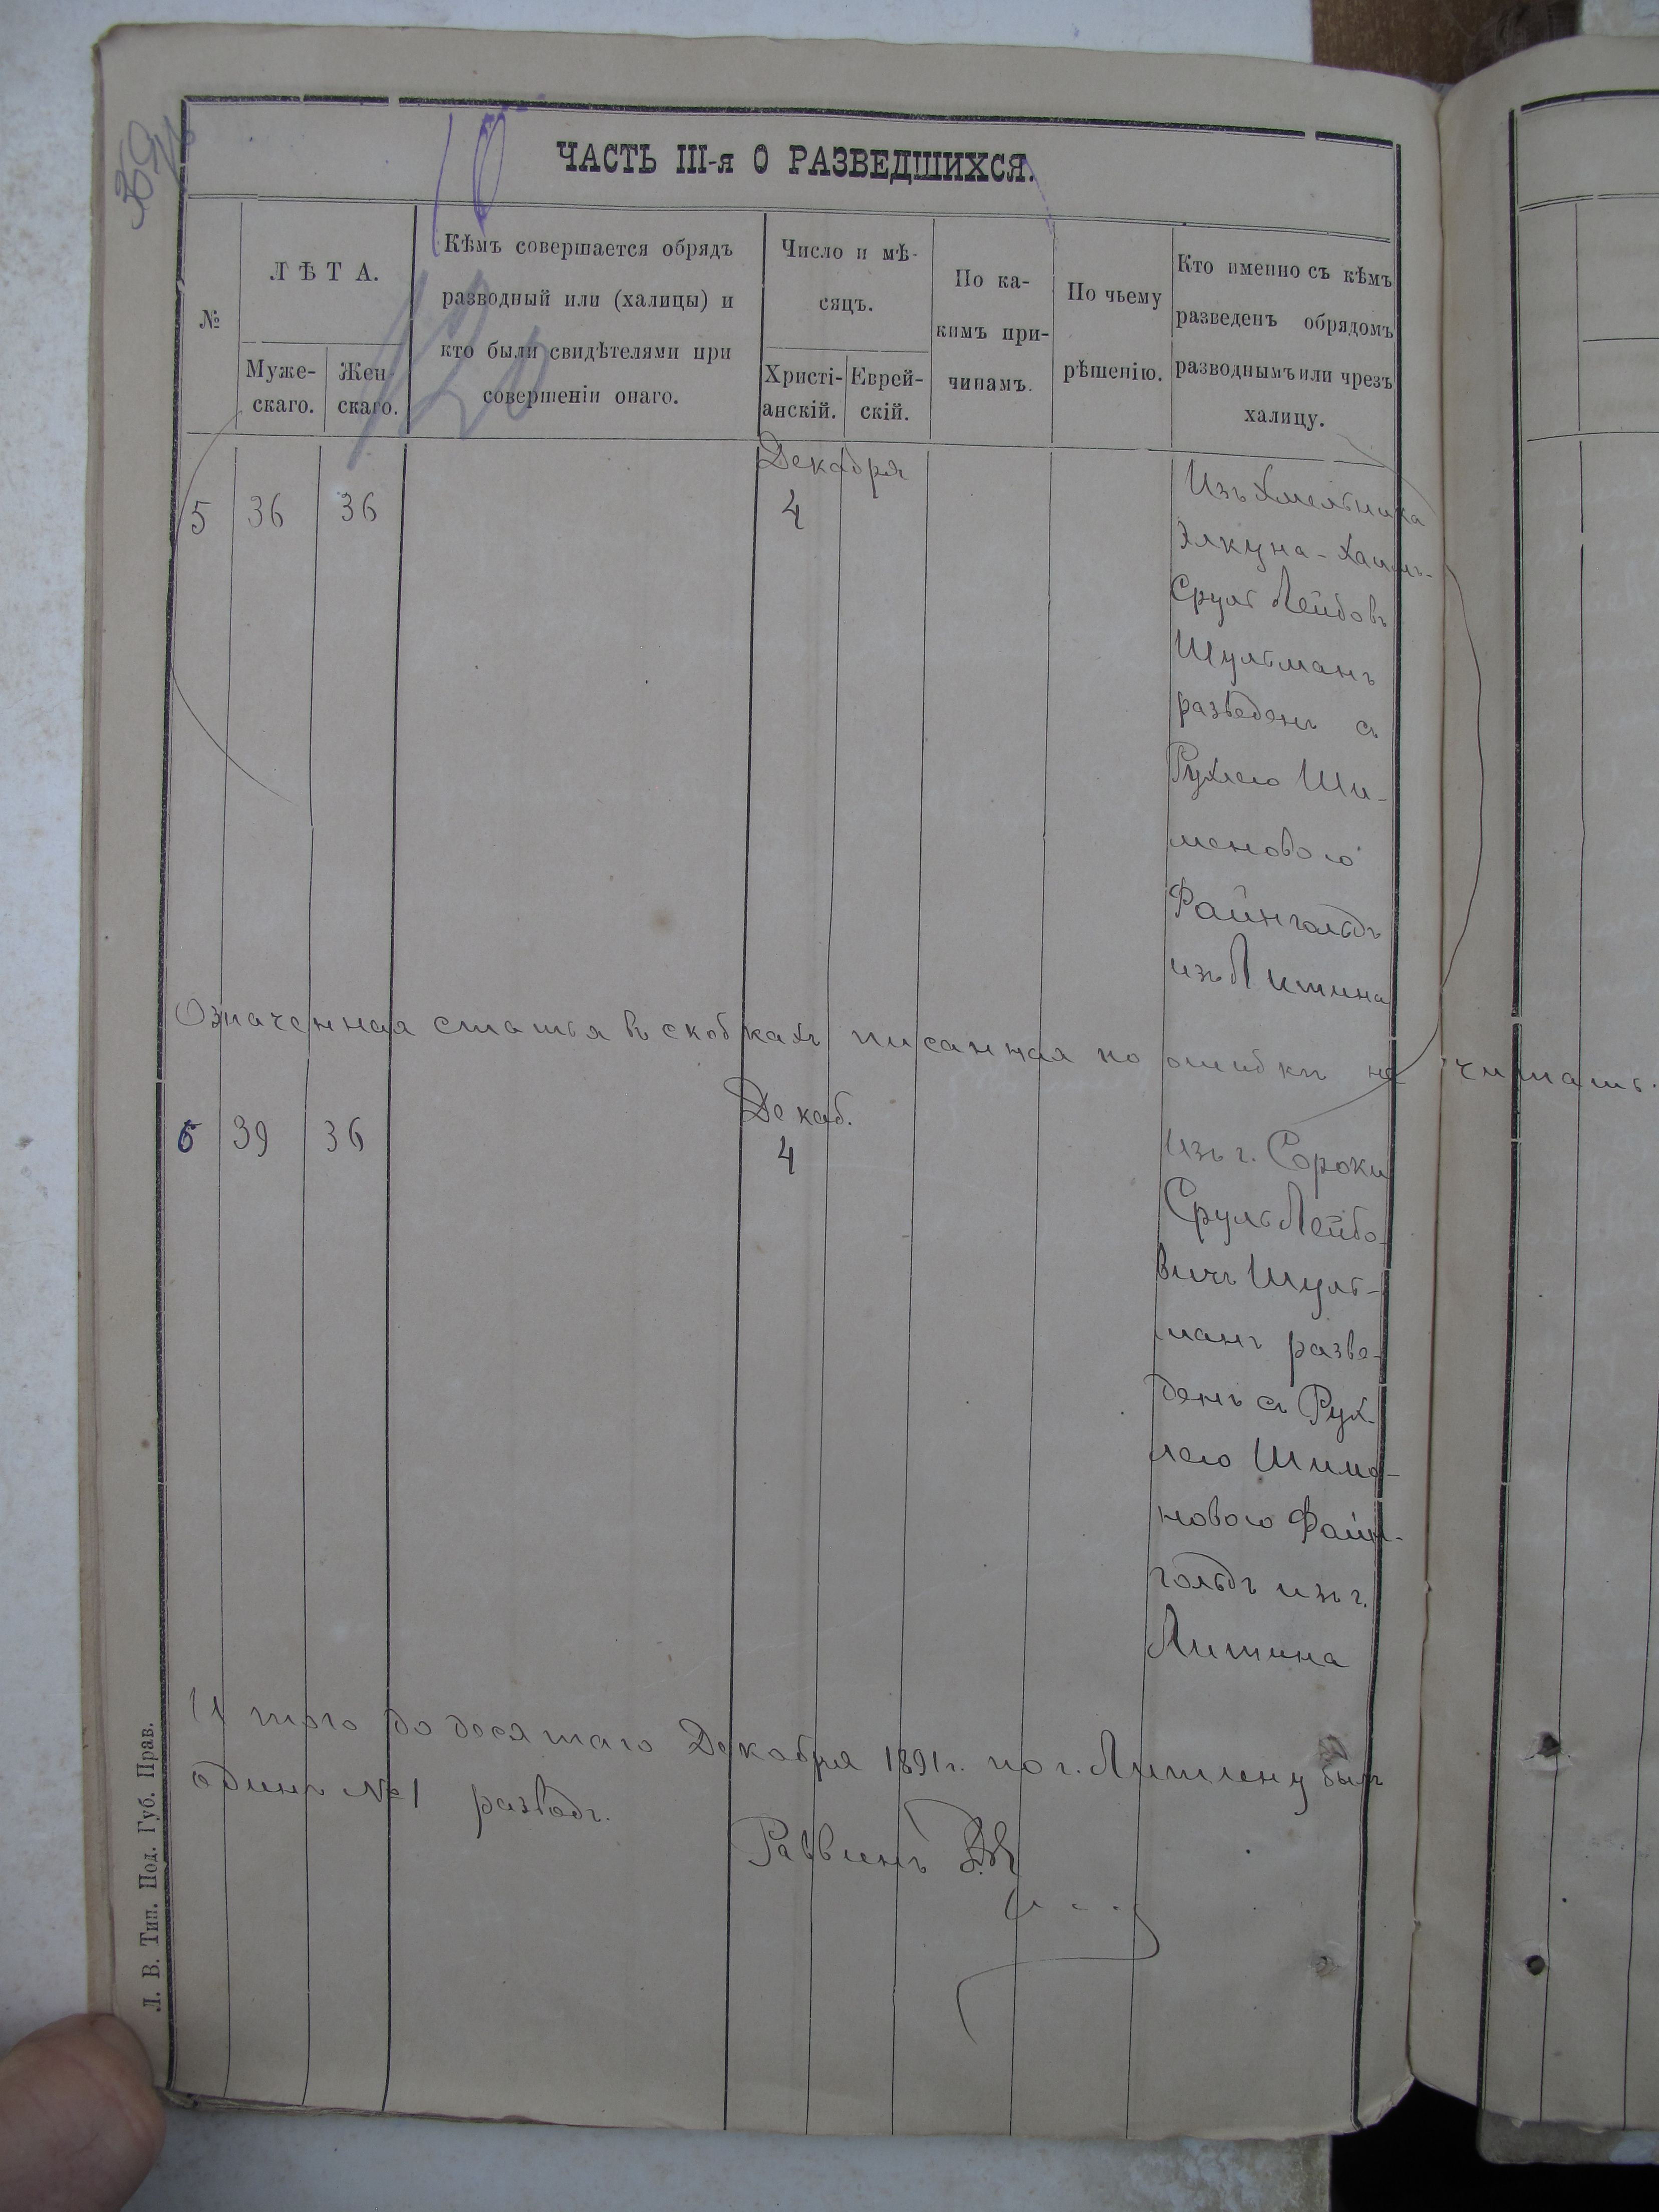 ЧАСТЬ III-я О РАЗВЕДШИХСЯ.
№
ЛѢТА.
Муже-
скаго.
Жен-
скаго.
Кѣмъ совершается обрядъ
разводный или (халицы) и
кто были свидѣтелями при
совершеніи онаго.
Число и мѣ-
сяцъ.
Христі-
анскій.
Еврей-
скій.
По ка-
кимъ при-
чинамъ.
По чьему
рѣшенію.
Кто именно съ кѣмъ
разведенъ обрядомъ
разводнымъ или чрезъ
халицу.
Декабря
5 36 36 4
Изъ Хмельника
Элкуна-Хаимъ-
Сруль Лейбовъ
Шульманъ
разведенъ съ
Рухлею Ши-
меновою
Файнгольдъ
изъ Литина
Означенная статья въ скобкахъ писанная по ошибки не читать.
Декаб.
39 36 4
Изъ г. Сороки
Сруль Лейбо-
вичъ Шуль-
манъ разве-
денъ съ Рух-
лею Шиме-
новою Файн-
гольдъ изъ г.
Литина
Итого до десятаго Декабря 1891 г. по г. Литину былъ
одинъ №1 разводъ.
Раввинъ
Л. В. Тип. Под. Губ. Прав.